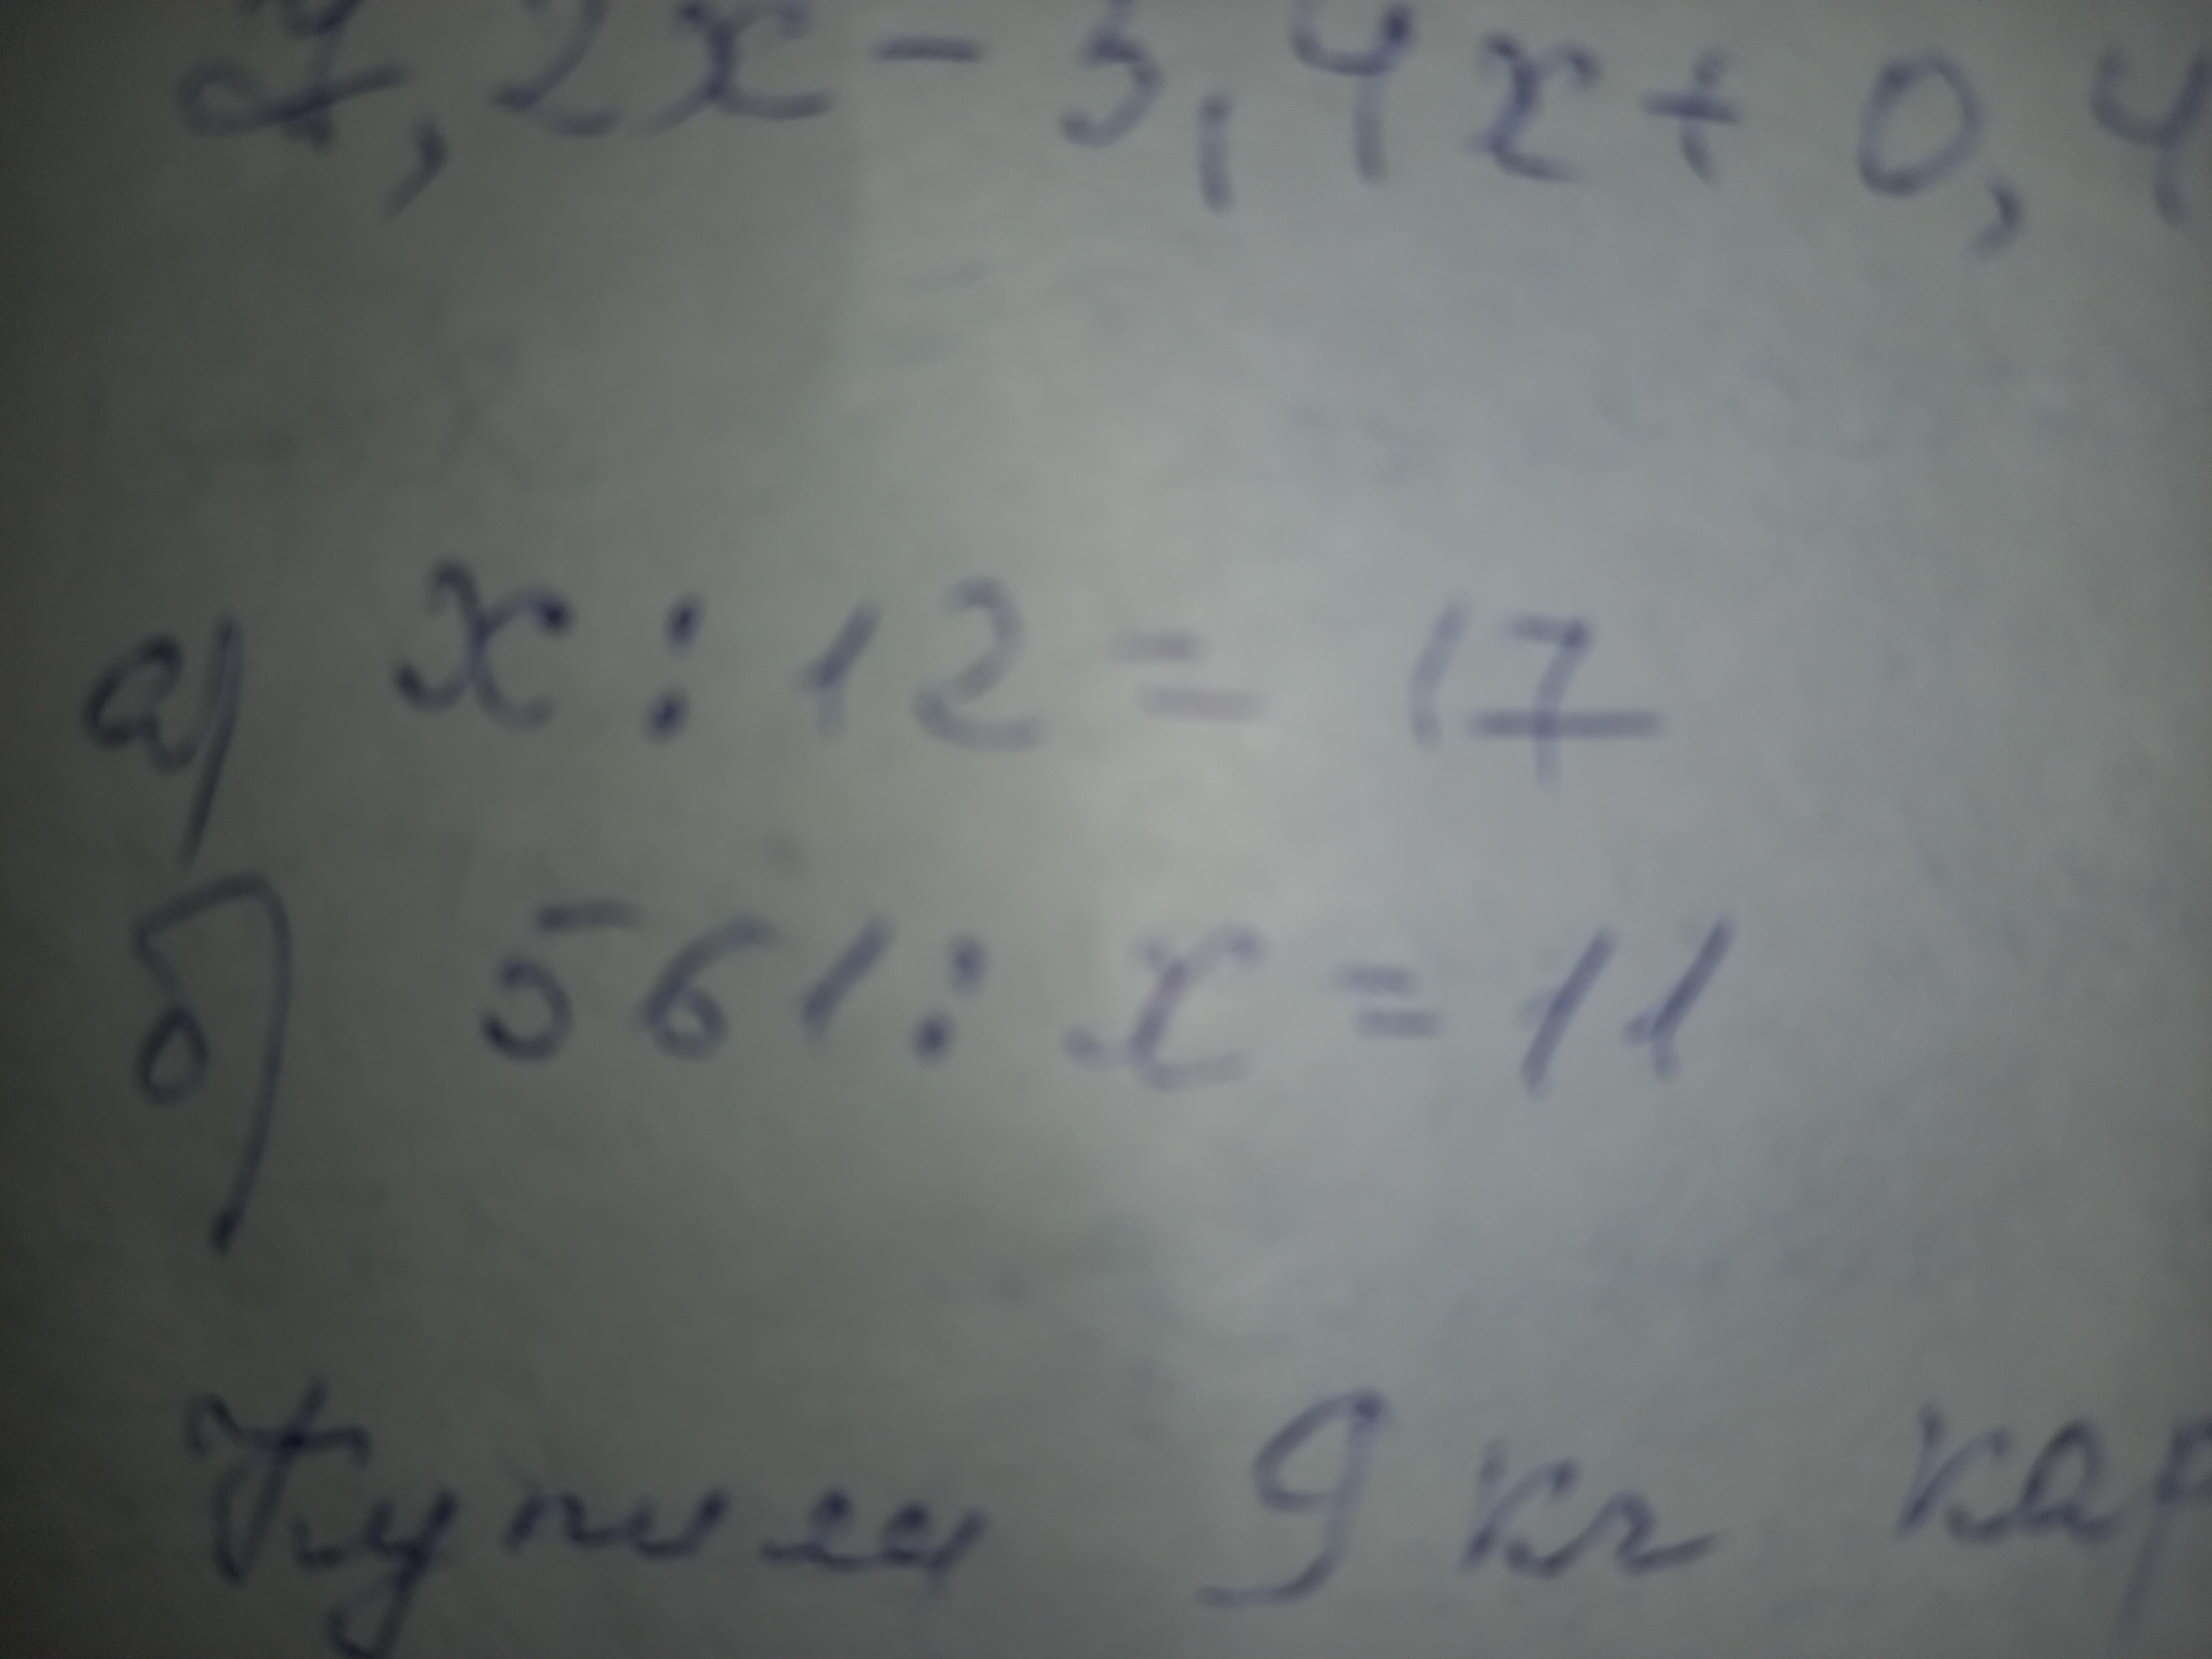 7,2x - 3,4x + 0,4
а) x : 12 = 17
б) 561 : x = 11
Купили 9 кг кар